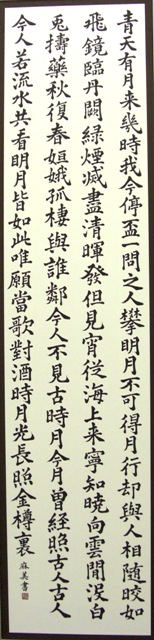 青天有月来幾時我今停盃一問之人攀明月不可得月行却與人相隨皎如
飛鏡臨丹闕緑煙滅盡清暉發但見宵從海上来寧知曉向雲閒没白
兎擣藥秋復春姮娥孤棲與誰鄰今人不見古時月今月曾経照古人古人
今人若流水共看明月皆如此唯願當歌對酒時月光長照金樽裏
麻美書